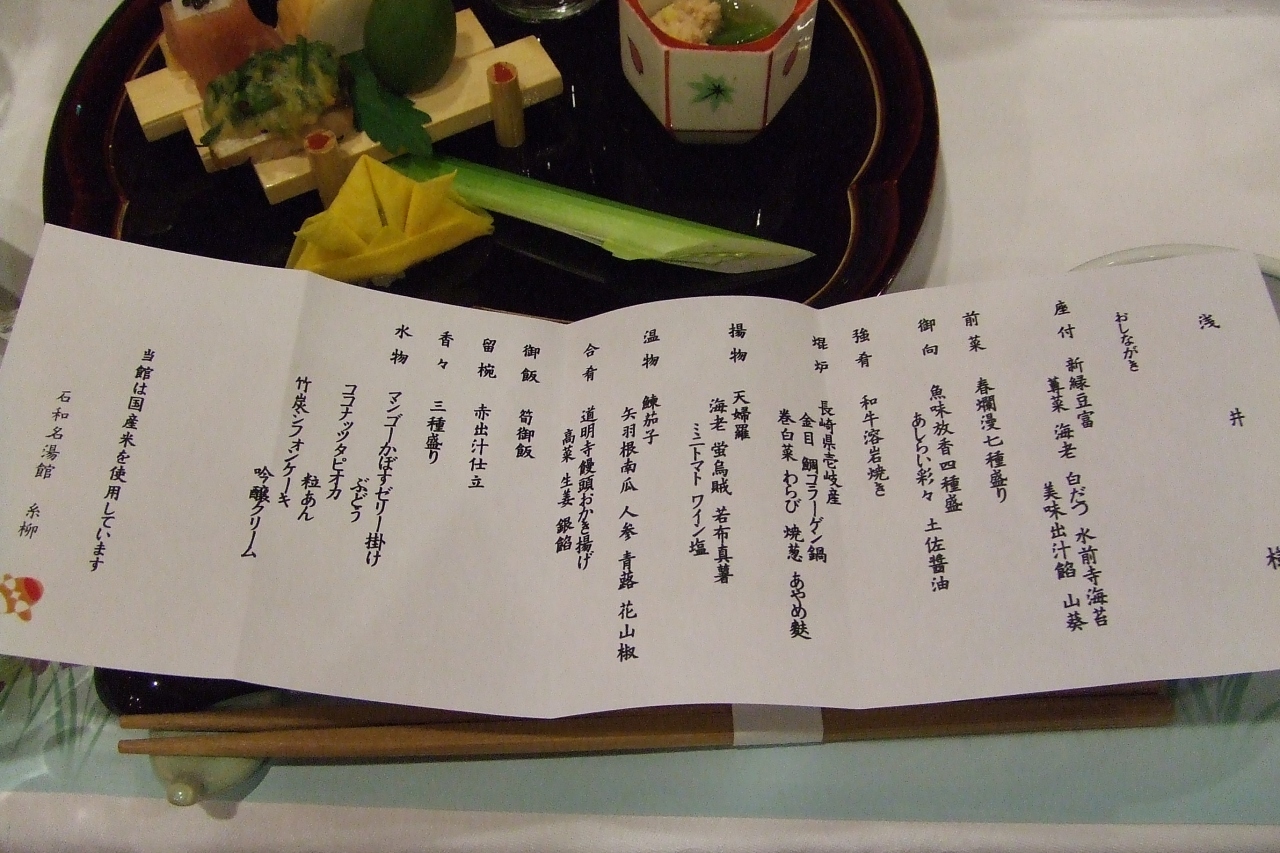 浅井様
おしながき
座付 新緑豆富 白だつ 水前寺海苔
蓴菜 海老 美味出汁餡 山葵
前菜 春爛漫七種盛り
御向 魚味放香四種盛
あしらい彩々 土佐醬油
強肴 和牛溶岩焼き
焜炉 長崎県壱岐産
金目鯛コラーゲン鍋
巻白菜 わらび 焼葱 あやめ麩
揚物 天婦羅
海老 蛍烏賊 若布真薯
ミニトマト ワイン塩
温物 鰊茄子
矢羽根南瓜 人参 青蕗 花山椒
合肴 道明寺饅頭おかき揚げ
高菜 生姜 銀餡
御飯 筍御飯
留椀 赤出汁仕立
香々 三種盛り
水物 マンゴーかぼすゼリー掛け
ぶどう
ココナッツタピオカ
粒あん
竹炭シフォンケーキ
吟醸クリーム
当館は国産米を使用しています
石和名湯館 糸柳